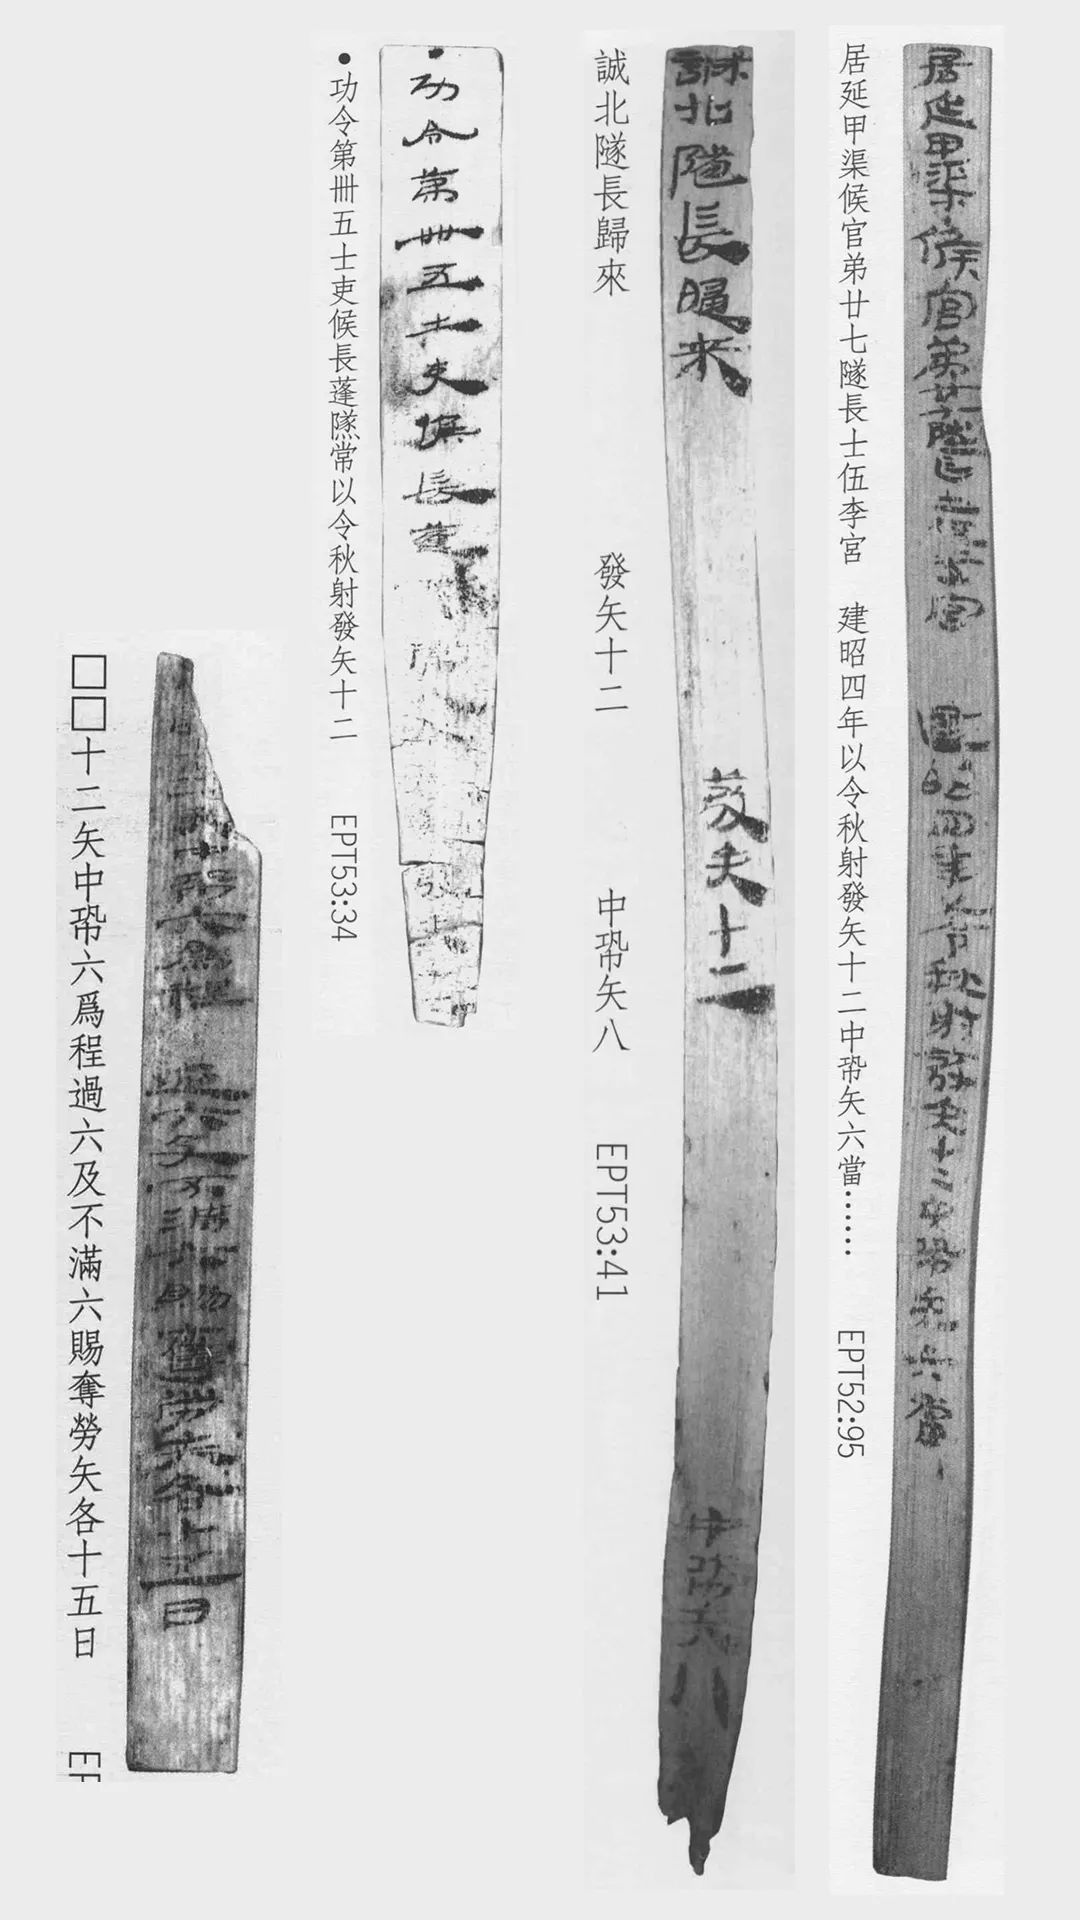 居延甲渠候官弟廿七隧長士伍李宮　建昭四年以令秋射發矢十二中帬矢六當……　EPT52:95
誠北隧長歸來　發矢十二　中帬矢八　EPT53:41
●功令第卌五士吏候長蓬隧常以令秋射發矢十二　EPT53:34
□□十二矢中帬六爲程過六及不滿六賜奪勞矢各十五日